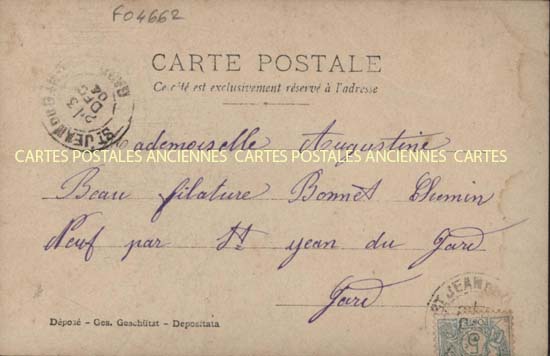 F04662
CARTE POSTALE
Ce côté est exclusivement réservé à l'adresse
ST JEAN DU GARD
GARD
2 / 3
DEC
04
Mademoiselle Augustine
CARTES POSTALES ANCIENNES CARTES POSTALES ANCIENNES CARTES
Beau filature Bonnet Chemin
Neuf par St jean du Gard
Gard
ST JEAN DU
Déposé – Ges. Geschützt – Depositata